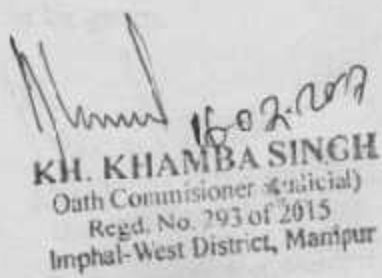 16.02.2017
KH. KHAMBA SINGH
Oath Commisioner (Judicial)
Regd. No. 293 of 2015
Imphal-West District, Manipur